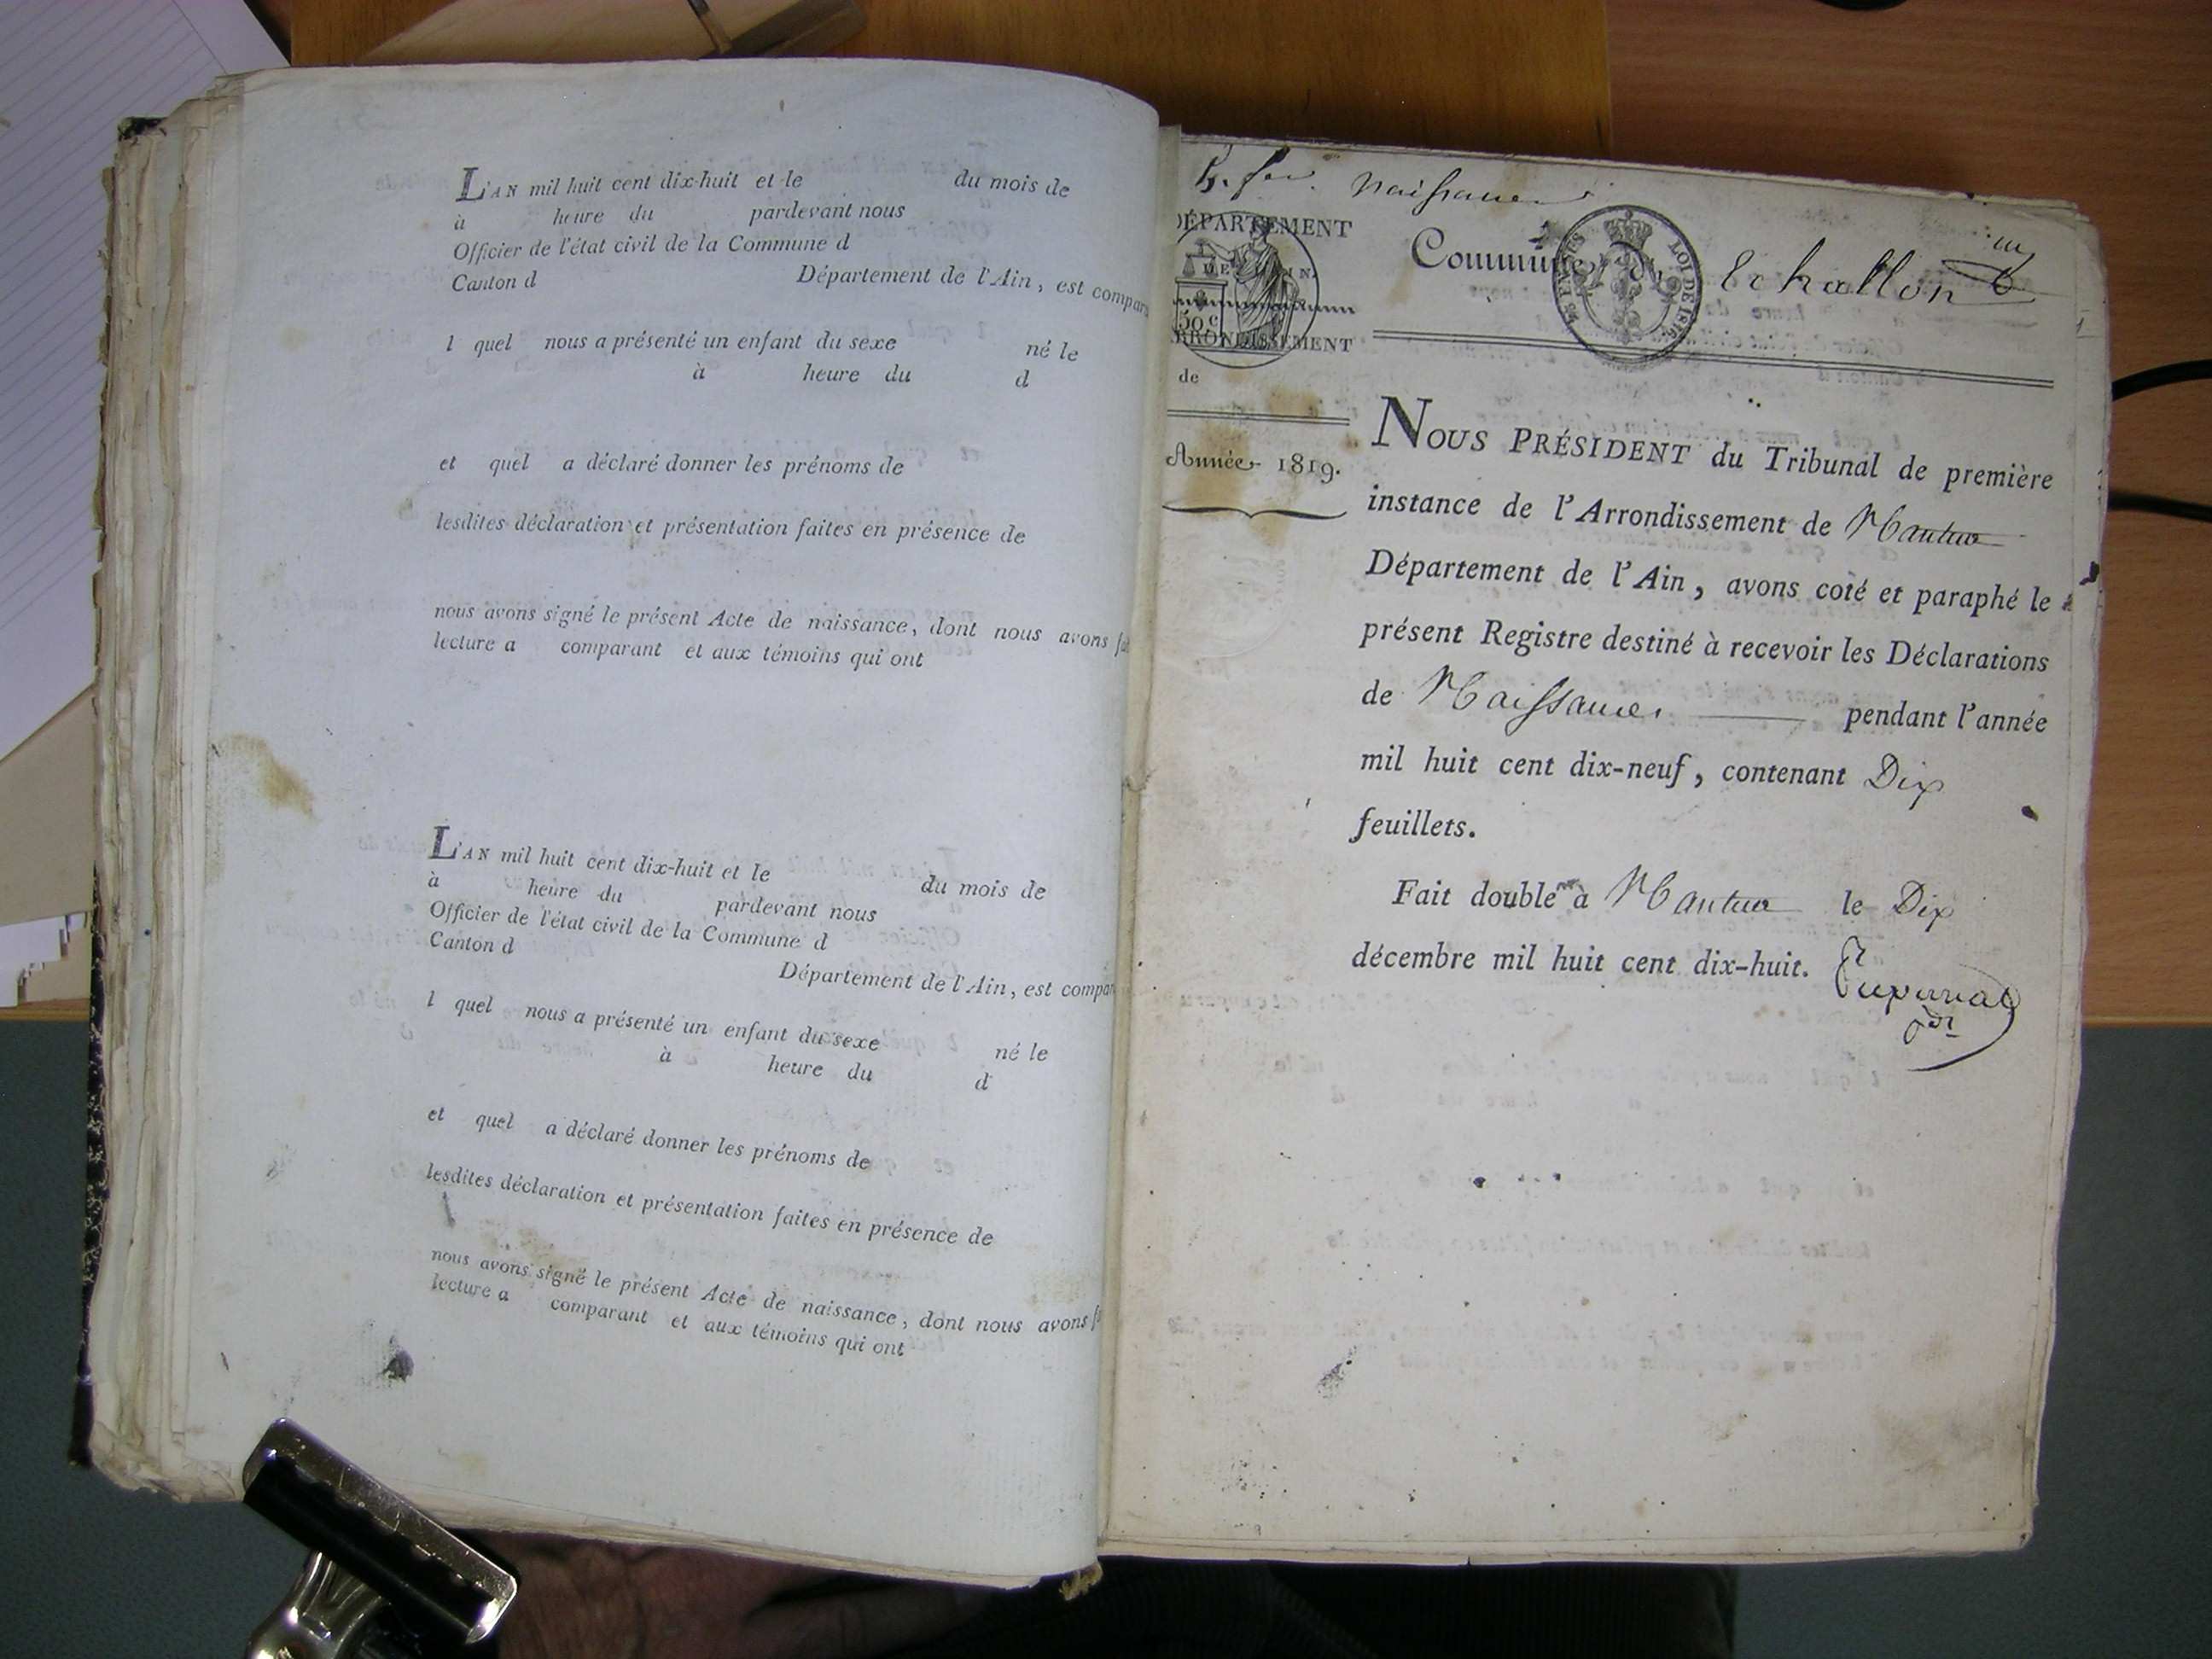 L'AN mil huit cent dix-huit et le du mois de
à heure du pardevant nous
Officier de l'état civil de la Commune d
Canton d Département de l'Ain, est compar
l quel nous a présenté un enfant du sexe né le
à heure du d
et quel a déclaré donner les prénoms de
lesdites déclaration et présentation faites en présence de
nous avons signé le présent Acte de naissance, dont nous avons fai
lecture a comparant et aux témoins qui ont
L'AN mil huit cent dix-huit et le du mois de
à heure du pardevant nous
Officier de l'état civil de la Commune d
Canton d
Département de l'Ain, est compar
l quel nous a présenté un enfant du sexe né le
à heure du d
et quel a déclaré donner les prénoms de
lesdites déclaration et présentation faites en présence de
nous avons signé le présent Acte de naissance, dont nous avons f
lecture a comparant et aux témoins qui ont
Naissances
DÉPARTEMENT
DE L'AIN.
50 c
ARRONDISSEMENT
de
Année 1819.
Commune d Echallon
LOI DE 1816
NOUS PRÉSIDENT du Tribunal de première
instance de l'Arrondissement de Nantua
Département de l'Ain, avons coté et paraphé le
présent Registre destiné à recevoir les Déclarations
de Naissances pendant l'année
mil huit cent dix-neuf, contenant Dix
feuillets.
Fait double à Nantua le Dix
décembre mil huit cent dix-huit.